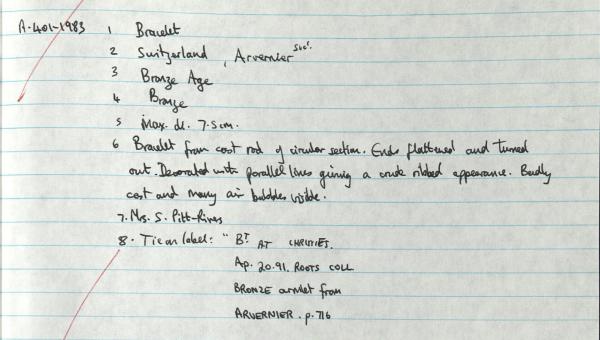 A.401-1983 1 Bracelet
2 Switzerland, Arvernier suc.
3 Bronze Age
4 Bronze
5 Max. di. 7.5cm.
6 Bracelet from cast rod of circular section. Ends flattened and turned
out. Decorated with parallel lines giving a crude ribbed appearance. Badly
cast and many air bubbles visible.
7. Mrs. S. Pitt-Rivers
8. Tie on label: " BT AT CHRISTIES.
Ap. 20.91. ROOTS COLL
BRONZE armlet from
ARVERNIER. p.716